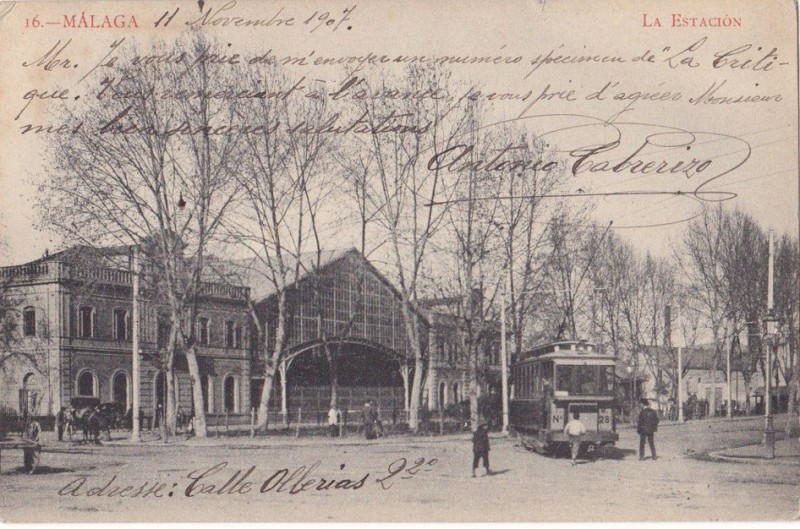 16.—MÁLAGA 11 Novembre 1907. LA ESTACIÓN
Mr. Je vous prie de m'envoyer un numéro spécimen de "La Criti-
que. Vous remerciant à l'avance je vous prie d'agréer Monsieur
mes bien sincères salutations
Antonio Cabrerizo
Nº 28
Adresse: Calle Ollerias 22º